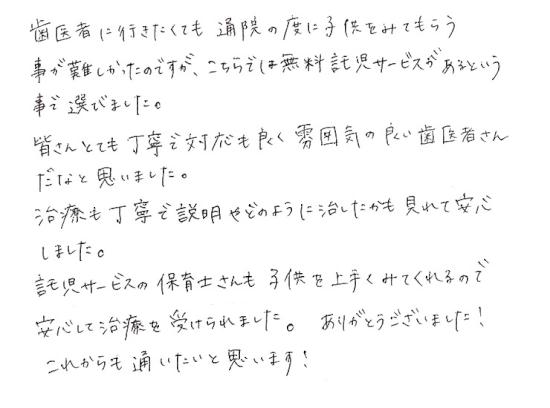 歯医者に行きたくても通院の度に子供をみてもらう
事が難しかったのですが、こちらでは無料託児サービスがあるという
事で選びました。
皆さんとても丁寧で対応も良く雰囲気の良い歯医者さん
だなと思いました。
治療も丁寧で説明やどのように治したかも見れて安心
しました。
託児サービスの保育士さんも子供を上手くみてくれるので
安心して治療を受けられました。ありがとうございました！
これからも通いたいと思います！